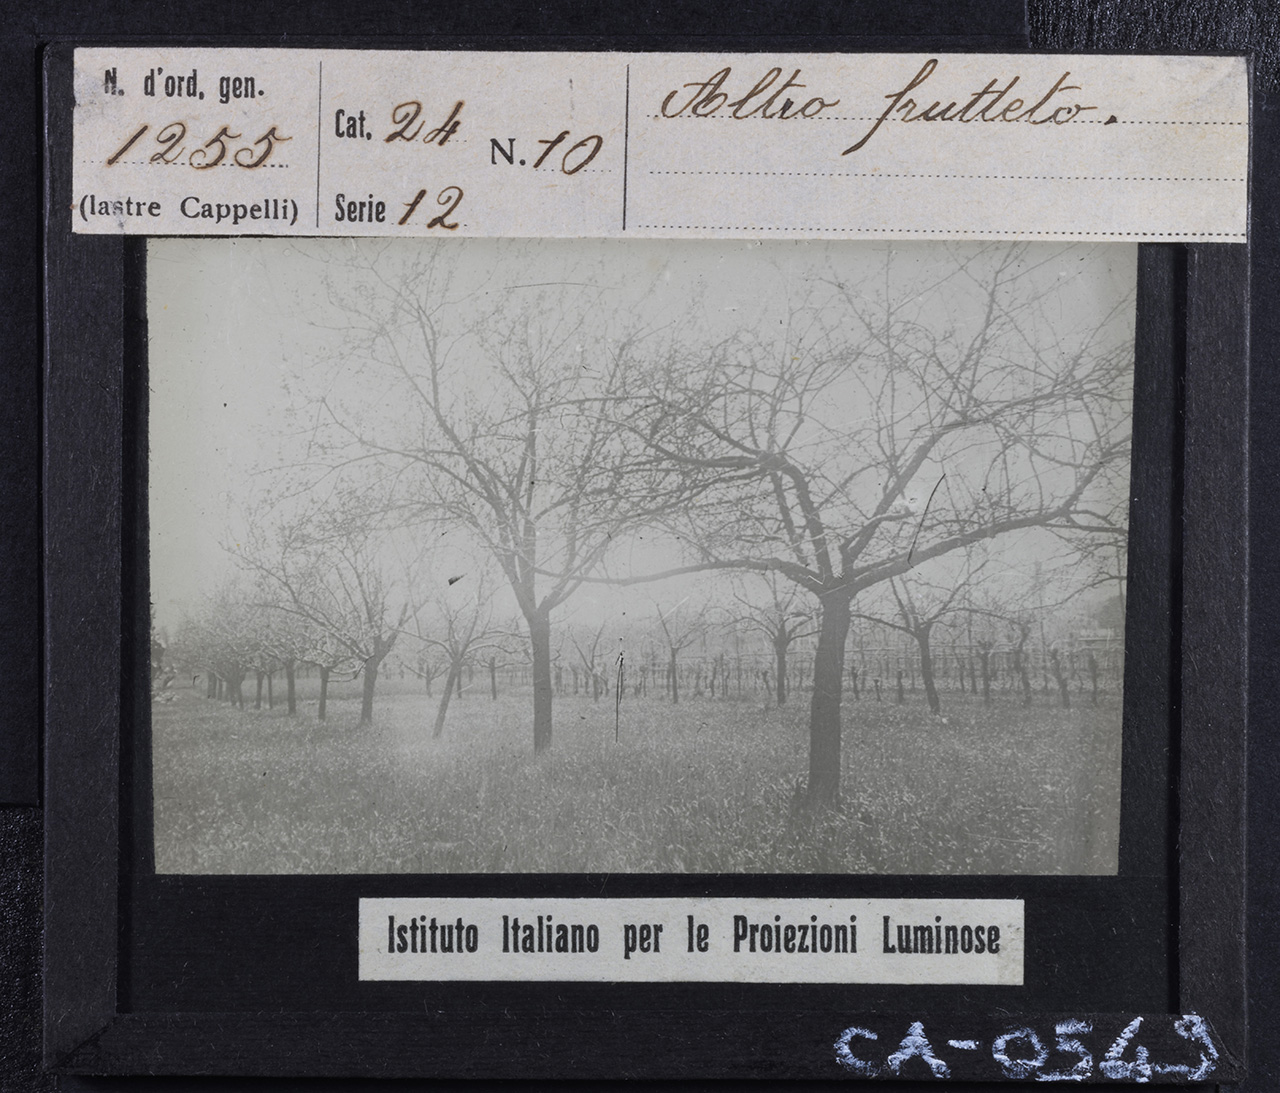 N. d'ord. gen.
1255
(lastre Cappelli)
Cat. 24
N. 10
Serie 12
Altro frutteto.
Istituto Italiano per le Proiezioni Luminose
CA-0549